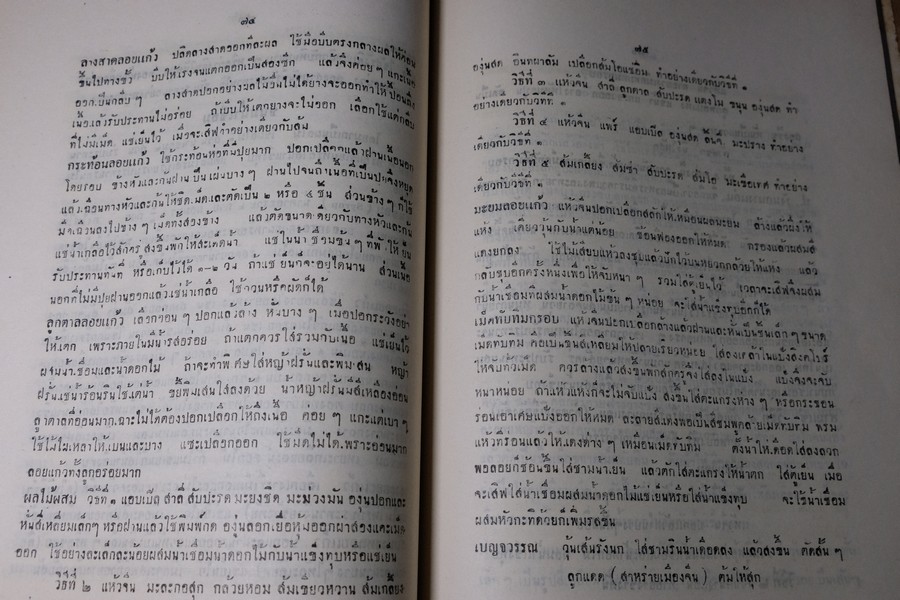 ๗๔
ลางสาดลอยแก้ว ปลิดลางสาดออกทีละผล ใช้มือบีบตรงกลางผลให้ค่อน
ขึ้นไปทางขั้ว บีบให้แรงจนแตกออกเป็นสองซีก แล้วจึงค่อย ๆ แกะเนื้อ
ออกเป็นกลีบ ๆ ลางสาดปอกอย่างผลไม้อื่นไม่ได้ยางจะออกทำให้เปื้อนถึง
เนื้อแล้วรับประทานไม่อร่อย ถ้าบีบให้แตกยางจะไม่ออก เลือกใช้แต่กลีบ
ที่ไม่มีเม็ด แช่เย็นไว้ เมื่อจะเสิฟทำอย่างเดียวกับส้ม
กระท้อนลอยแก้ว ใช้กระท้อนห่อที่มีปุยมาก ปอกเปลือกแล้วฝานเนื้อนอก
โดยรอบ ข้างหัวและก้นฝานเป็นแผ่นบาง ๆ ฝานไปจนถึงเนื้อที่เป็นปุยจึงหยุด
แล้วเฉือนทางหัวและก้นให้ชิดเม็ดและตัดเป็น ๒ หรือ ๔ ชิ้น ส่วนข้าง ๆ ก็ใช้
มีดเฉือนลงไปข้าง ๆ เม็ดทั้งสองข้าง แล้วตัดขนาดเดียวกับทางหัวและก้น
แช่น้ำเกลือไว้สักครู่ ส่งขึ้นพักให้สะเด็ดน้ำ แช่ในน้ำเชื่อมข้น ๆ ที่พักให้เย็น
รับประทานทันที หรือเก็บไว้ได้ ๑-๒ วัน ถ้าแช่เย็นก็จะอยู่ได้นาน ส่วนเนื้อ
นอกที่ไม่มีปุยฝานออกแล้วแช่น้ำเกลือ ใช้กวนหรือผัดก็ได้
ลูกตาลลอยแก้ว เลือกอ่อน ๆ ปอกแล้วล้าง หั่นบาง ๆ เมื่อปอกระวังอย่า
ให้แตก เพราะภายในมีน้ำรสอร่อย ถ้าแตกควรใส่รวมกับเนื้อ แช่เย็นไว้
ผสมน้ำเชื่อมและน้ำดอกไม้ ถ้าจะทำพิเศษใส่หญ้าฝรั่นและพิมเสน หญ้า
ฝรั่นแช่น้ำร้อนรินใช้แต่น้ำ ขยี้พิมเสนใส่ลงด้วย น้ำหญ้าฝรั่นมีสีเหลืองอ่อน
ลูกตาลที่อ่อนมากเฉาะไม่ได้ต้องปอกเปลือกให้ถึงเนื้อ ค่อย ๆ แกะแต่เบา ๆ
ใช้ไม้ไผ่เหลาให้แบนและบาง แซะเปลือกออก ใช้มีดไม่ได้เพราะอ่อนมาก
ลอยแก้วทั้งลูกอร่อยมาก
ผลไม้ผสม วิธีที่ ๑ แอบเปิล สาลี่ สับปะรด มะยงชิด มะม่วงมัน องุ่นปอกและ
หั่นสี่เหลี่ยมเล็กๆ หรือฝานแล้วใช้พิมพ์กด องุ่นลอกเยื่อหุ้มออกผ่าสองแคะเม็ด
ออก ใช้อย่างละเล็กละน้อยผสมน้ำเชื่อมน้ำดอกไม้กับน้ำแข็งทุบหรือแช่เย็น
วิธีที่ ๒ แห้วจีน มะละกอสุก กล้วยหอม ส้มเขียวหวาน ส้มเกลี้ยง
๗๕
องุ่นสด อินทผาลัม เปลือกส้มโอแช่อิ่ม ทำอย่างเดียวกับวิธีที่ ๑
วิธีที่ ๓ แห้วจีน สาลี่ ลูกตาล สับปะรด แตงโม ขนุน องุ่นสด ทำ
อย่างเดียวกับวิธีที่ ๑
วิธีที่ ๔ แห้วจีน แพร์ แอบเปิล องุ่นสด ลิ้นจี่ มะปราง ทำอย่าง
เดียวกับวิธีที่ ๑
วิธีที่ ๕ ส้มเกลี้ยง ส้มซ่า สับปะรด ส้มโอ มะเขือเทศ ทำอย่าง
เดียวกับวิธีที่ ๑
มะยมลอยแก้ว แห้วจีนปอกเปลือกสลักให้เหมือนผลมะยม ล้างแล้วผึ่งให้
แห้ง เคี่ยววุ้นกับน้ำแต่น้อย ช้อนฟองออกให้หมด กรองแล้วผสมสี
แดงยกลง ใช้ไม้เสียบแห้วลงชุบแล้วปักไว้บนหยวกกล้วยให้แห้ง แล้ว
กลับชุบอีกครั้งหนึ่งเพื่อให้จับหนา ๆ รวมใส่ตู้เย็นไว้ เวลาจะเสิฟจึงผสม
กับน้ำเชื่อมที่ผสมน้ำดอกไม้ข้น ๆ หน่อย จะใส่น้ำแข็งทุบอีกก็ได้
เม็ดทับทิมกรอบ แห้วจีนปอกเปลือกล้างแล้วฝานและหั่นเป็นชิ้นเล็ก ๆ ขนาด
เม็ดทับทิม คือเป็นชิ้นสี่เหลี่ยมให้ปลายเรียวหน่อย ใส่ลงเคล้าในแป้งสิงคโปร์
ให้จับทั่วเม็ด ควรล้างแล้วส่งขึ้นพักสักครู่จึงใส่ลงในแป้ง แป้งจึงจะจับ
หนาหน่อย ถ้าแห้วแห้งก็จะไม่จับแป้ง ส่งขึ้นใส่ตะแกรงห่าง ๆ หรือกระชอน
ร่อนเอาเศษแป้งออกให้หมด ละลายสีแดงพอเป็นสีชมพูคล้ายเม็ดทับทิม พรม
แห้วที่ร่อนแล้วให้แดงด่าง ๆ เหมือนเม็ดทับทิม ตั้งน้ำให้เดือดใส่ลงลวก
พอลอยก็ช้อนขึ้นใส่ชามน้ำเย็น แล้วตักใส่ตะแกรงให้น้ำตก ใส่ตู้เย็น เมื่อ
จะเสิฟใส่น้ำเชื่อมผสมน้ำดอกไม้แช่เย็นหรือใส่น้ำแข็งทุบ จะใช้น้ำเชื่อม
ผสมหัวกะทิด้วยก็เพิ่มรสขึ้น
เบญจวรรณ วุ้นเส้นรังนก ใส่ชามรินน้ำเดือดลง แล้วส่งขึ้น ตัดสั้น ๆ
ลูกแดด (สาหร่ายเมืองจีน) ต้มให้สุก